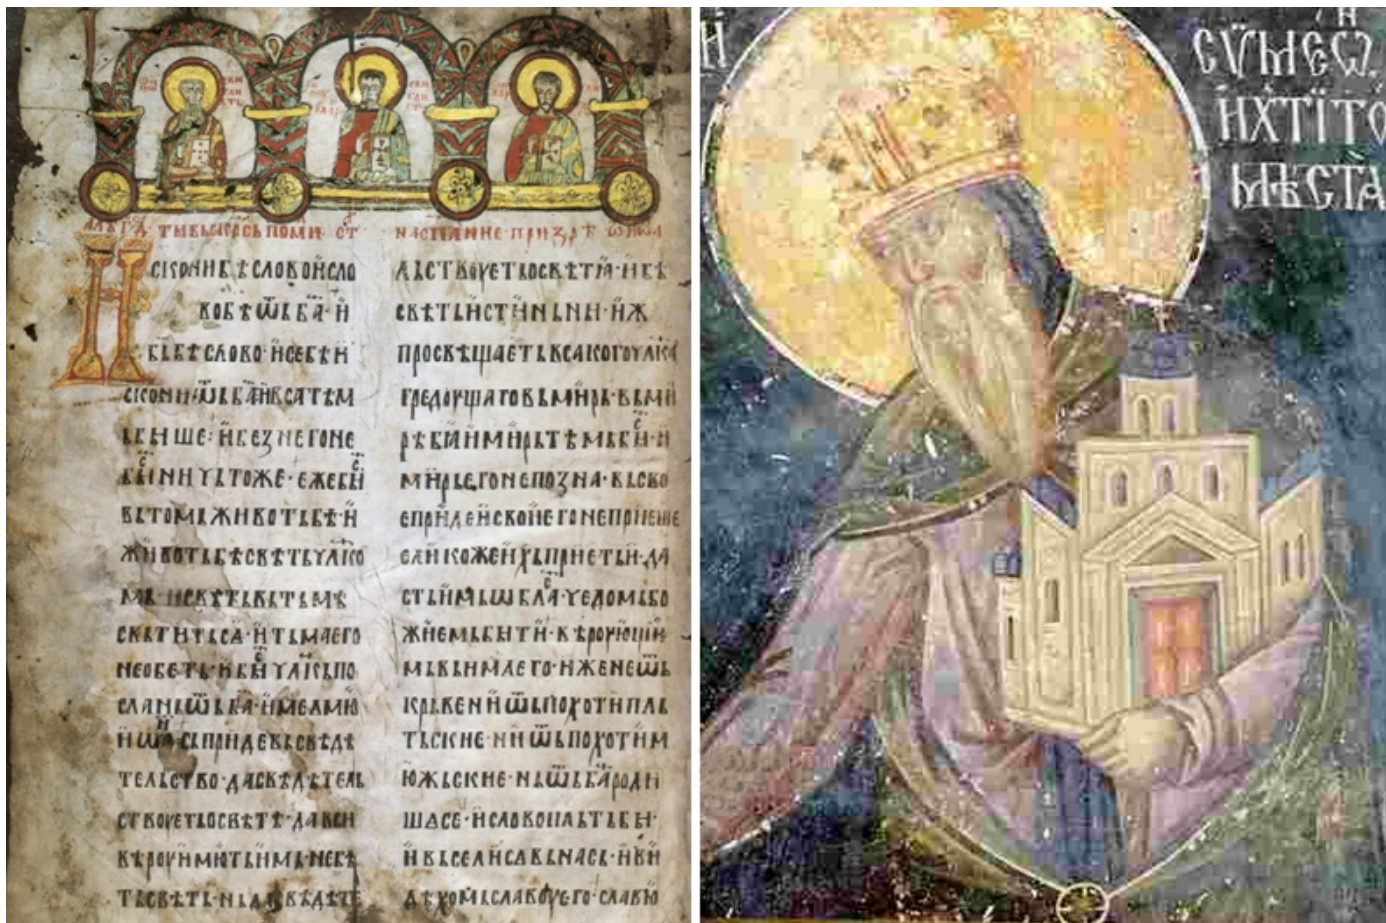 исконибѣсловоисло
вобѣѿьба҃·и
б҃ьбѣслово·исебѣи
скониѿьба҃ивсатѣм
ьбыше·ибезнегоне
быничьтоже·ежебы
вьтомьживотьбѣ·и
животьбѣсвѣтьчл҃ко
мь·исвѣтьвьтьмѣ
свѣтитьса·итьмаего
необеть·ибычл҃кьпо
сланьѿьба҃·имеѥмю
иѡ҃а·сьпридевьсвѣдѣ
тельство·дасвѣдѣтель
ствоуетьосвѣтѣ·давси
вѣроуимютьимь·небѣ
тьсвѣть·ньдасвѣдѣте
льствоуетьосвѣтѣ·ибѣ
свѣтьистиньны·иж
просвѣщаетьвсакогочл҃ка
гредоущаговьмирь·вьми
рѣбѣимирьтѣмьбы·и
мирьегонепозна·вьсво
епридеисвоиегонеприеше
еликожеихьприетьи·да
стьимьѡбла·чедомьбо
жиемьбыти·вѣроующи
мьвьимаего·иженеѿь
крьвениѿьпохотипль
тьские·ниѿьпохотим
южьские·ньѿьба҃роди
шасе·исловопльтьбы·
ивьселисавьнась·иви
дѣхомьславоуего·славю
СѴМЕѠ
И ХТИТО
МѢСТА